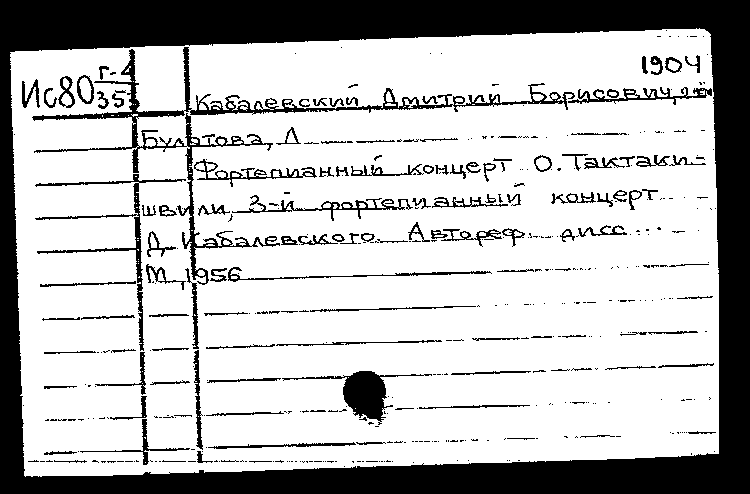 1904
Ис80 г-4
353
Кабалевский, Дмитрий Борисович, о нём
Булатова, Л
Фортепианный концерт О. Тактаки-
швили, 3-й фортепианный концерт
Д. Кабалевского. Автореф. дисс...
М, 1956